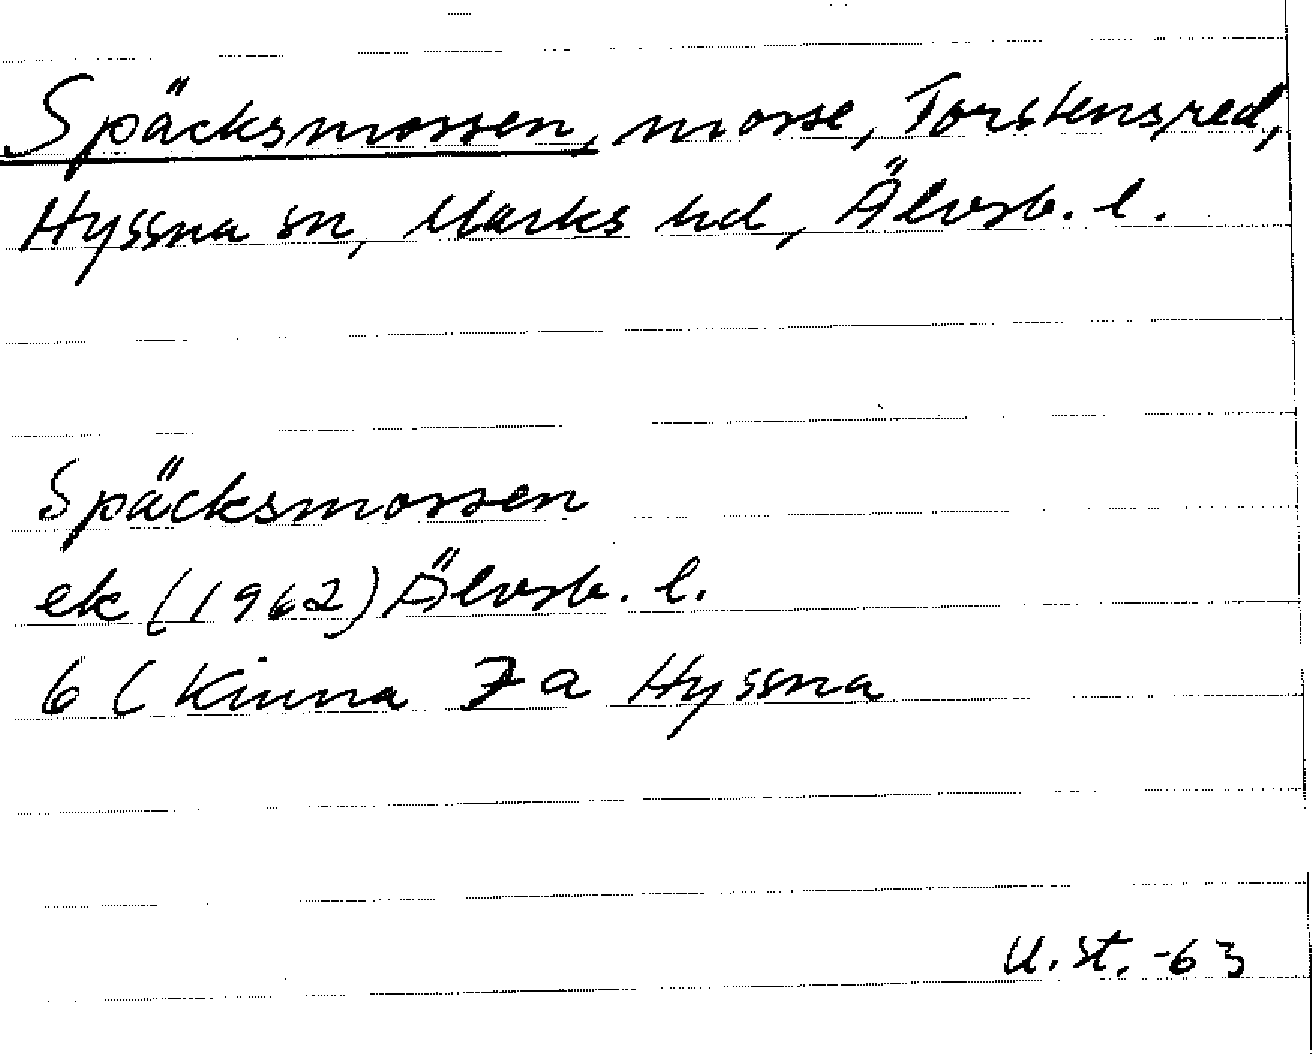 Späcksmossen, mosse, Torstensred,
Hyssna sn, Marks hd, Älvsb. l.
Späcksmossen
ek (1962) Älvsb. l.
6 ( Kinna 7 a Hyssna
U. St. -63